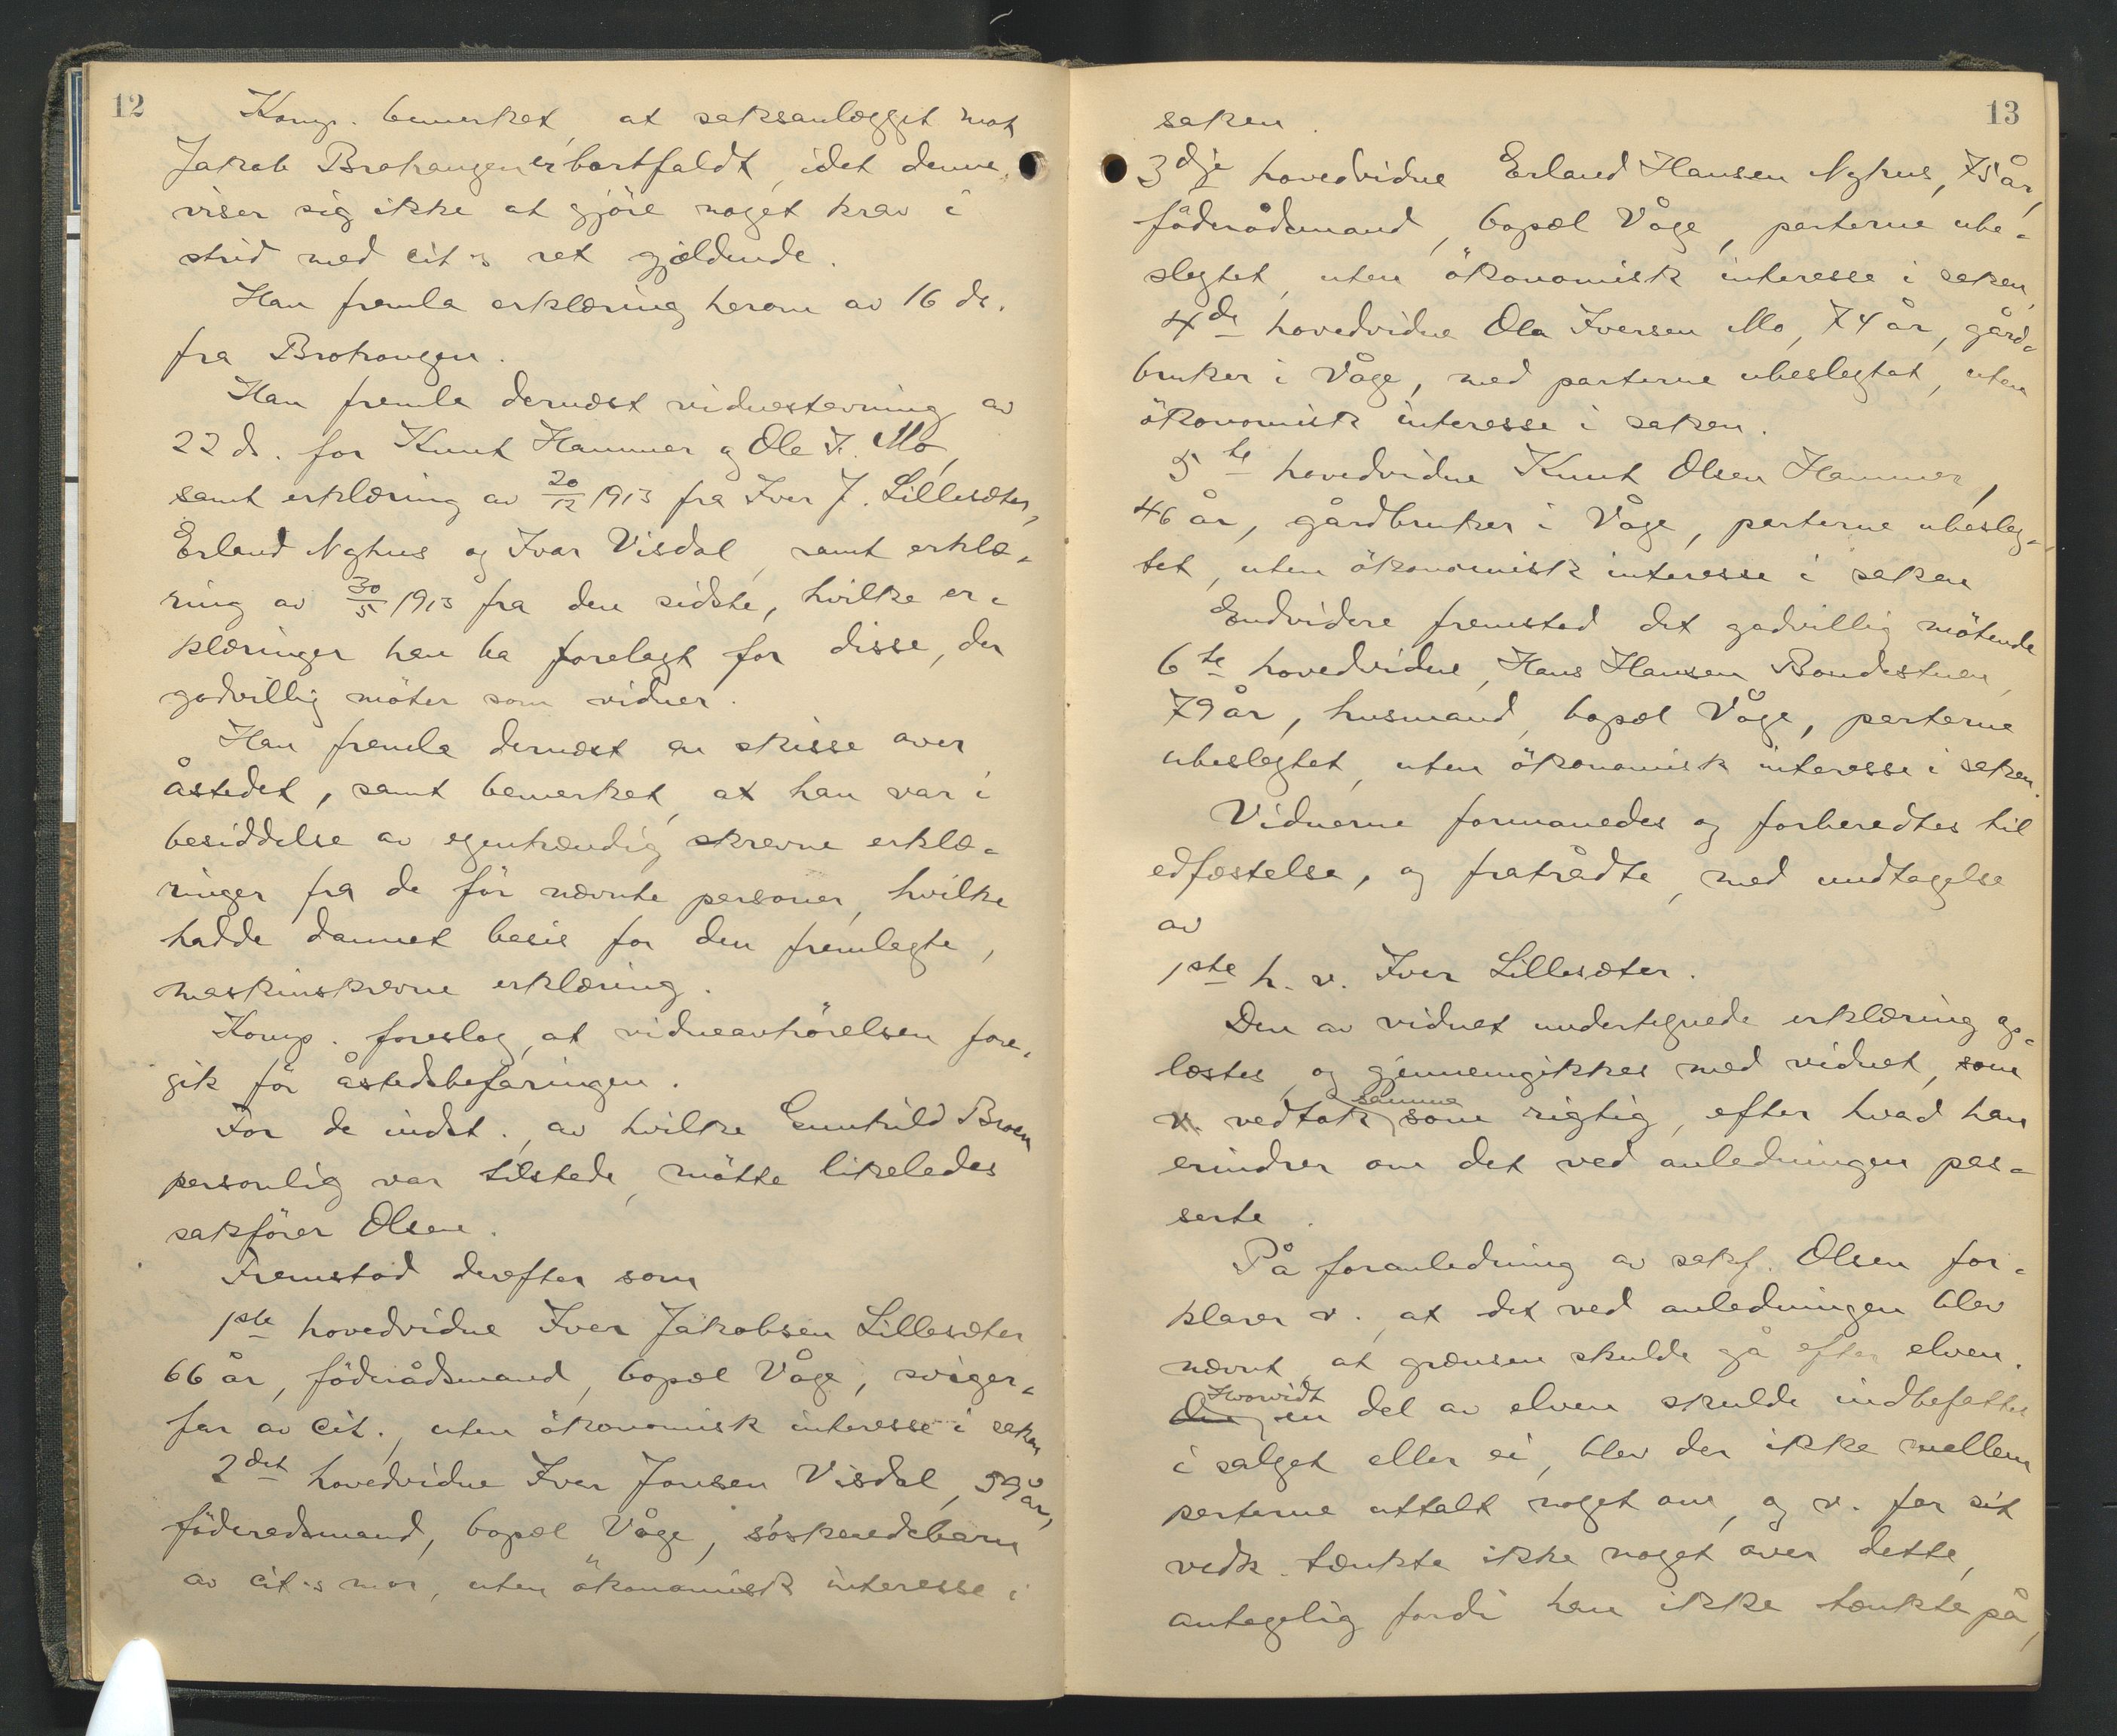 12
Komp. bemerket, at saksanlægget mot
Jakob Brohaugen er bortfaldt, idet denne
viser sig ikke at gjöre noget krav i
strid med cit.s ret gjældende.
Han fremla erklæring herom av 16 ds.
fra Brohaugen.
Han fremla dernæst vidnestevning av
22 ds. for Knut Hammer og Ole I. Mo,
samt erklæring av 20/12 1913 fra Iver J. Lillesæter,
Erland Nyhus og Ivar Visdal, samt erklæ-
ring av 30/5 1913 fra den sidste, hvilke er-
klæringer han ba forelagt for disse, der
godvillig möter som vidner.
Han fremla dernæst en skisse over
åstedet, samt bemerket, at han var i
besiddelse av egenhændig skrevne erklæ-
ringer fra de för nævnte personer, hvilke
hadde dannet basis for den fremlagte,
maskinskrevne erklæring.
Komp. foreslog, at vidneavhörelsen fore-
gik för åstedsbefaringen.
For de indst., av hvilke Gunhild Broen
personlig var tilstede, mötte likeledes
sakförer Olsen.
Fremstod derefter som
1ste hovedvidne Iver Jakobsen Lillesæter
66 år, föderådsmand, bopæl Våge, sviger-
far av cit., uten ökonomisk interesse i saken
2det hovedvidne Iver Jonsen Visdal, 59 år,
föderadsmand, bopæl Våge, söskendebarn
av cit.s mor, uten ökonomisk interesse i
13
saken.
3dje hovedvidne Erland Hansen Nyhus, 75 år,
föderådsmand, bopæl Våge, parterne ube-
slegtet, uten ökonomisk interesse i saken,
4de hovedvidne Ola Iversen Mo, 74 år, gård-
bruker i Våge, med parterne ubeslegtet, uten
ökonomisk interesse i saken.
5te hovedvidne Knut Olsen Hammer,
46 år, gårdbruker i Våge, parterne ubesleg-
tet, uten ökonomisk interesse i saken
Endvidere fremstod det godvillig mötende
6te hovedvidne, Hans Hansen Bondestuen,
79 år, husmand, bopæl Våge, parterne
ubeslegtet, uten ökonomisk interesse i saken.
Vidnerne formanedes og forberedtes til
edfæstelse, og fratrådte, med undtagelse
av
1ste h. v. Iver Lillesæter.
Den av vidnet undertegnede erklæring op-
læstes, og gjennemgikkes med vidnet, som
v. vedtok samme som rigtig, efter hvad han
erindrer om det ved anledningen pas-
serte.
På foranledning av sakf. Olsen for-
klarer v., at det ved anledningen blev
nævnt, at grænsen skulde gå efter elven.
Hvorvidt en del av elven skulde indbefattes
i salget eller ei, blev der ikke mellem
parterne uttalt noget om, og v. for sit
vedk. tænkte ikke noget over dette,
antagelig fordi han ikke tænkte på,